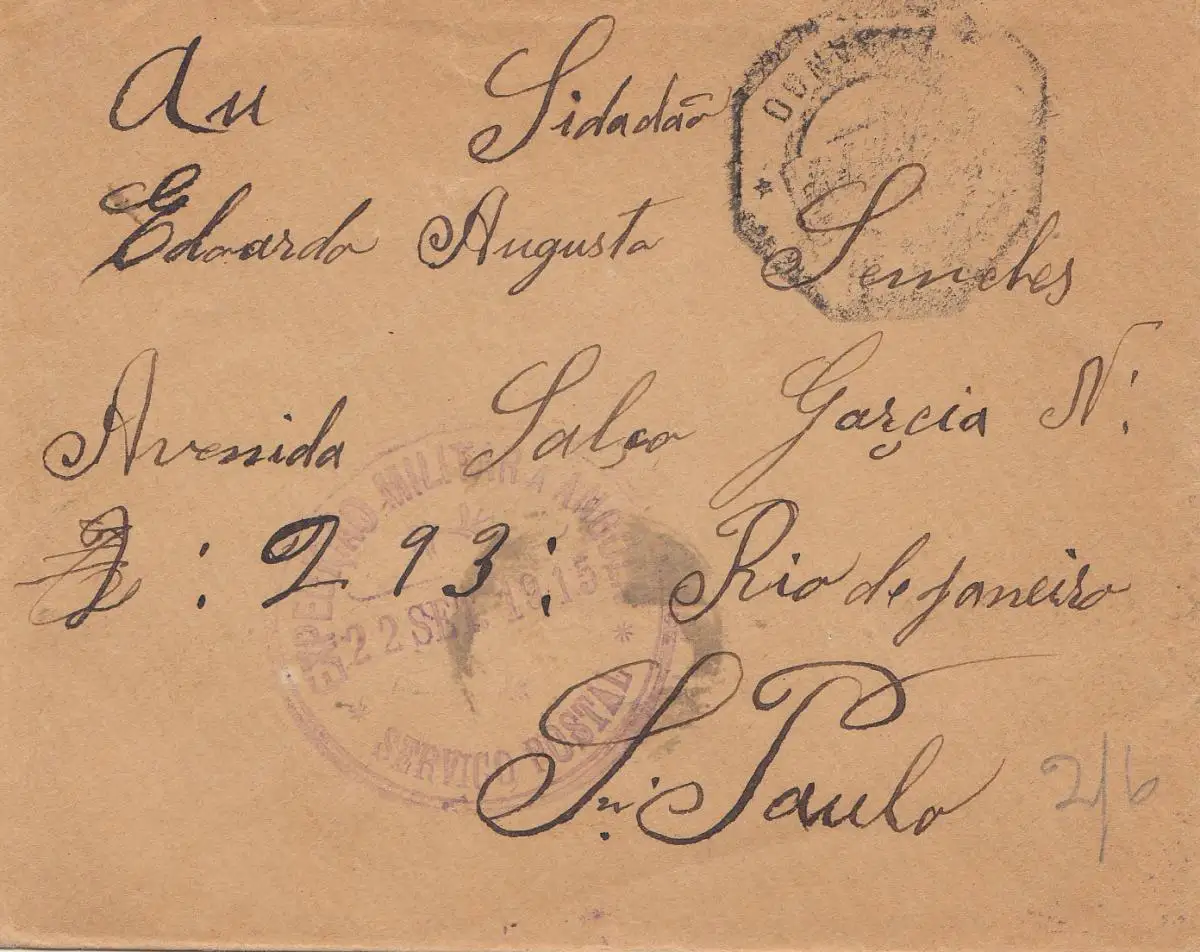 Au Sidadão
Edoardo Augusto Semches
Avenida Salso Garçia N.
2 : 293 : Rio de janeiro
Sn. Paulo
2/6
MILITAR A ANGOLA
22 SET. 1915
SERVIÇO POSTAL